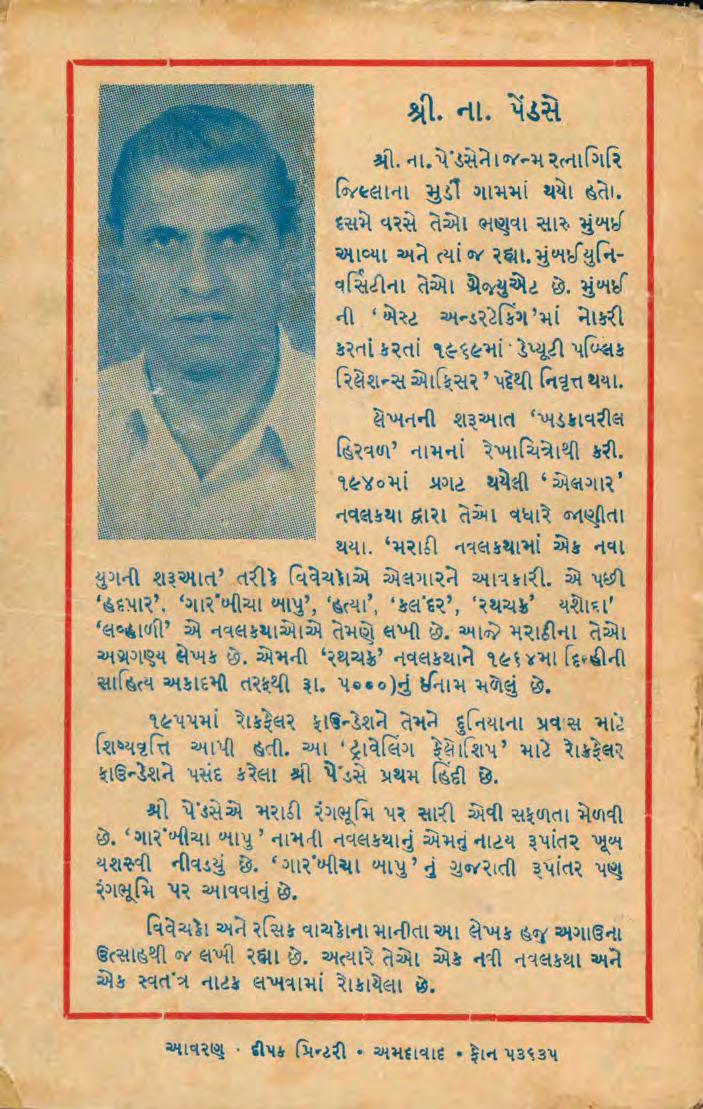 શ્રી. ના. પેંડસે
શ્રી. ના. પેંડસેનો જન્મ રત્નાગિરિ
જિલ્લાના મુર્ડી ગામમાં થયો હતો.
દસમે વરસે તેઓ ભણવા સારુ મુંબઈ
આવ્યા અને ત્યાં જ રહ્યા. મુંબઈ યુનિ-
વર્સિટીના તેઓ ગ્રેજ્યુએટ છે. મુંબઈ
ની ‘બેસ્ટ અન્ડરટેકિંગ’માં નોકરી
કરતાં કરતાં ૧૯૬૯માં ‘ડેપ્યૂટી પબ્લિક
રિલેશન્સ ઓફિસર’ પદેથી નિવૃત્ત થયા.
લેખનની શરૂઆત ‘ખડકાવરીલ
હિરવળ’ નામનાં રેખાચિત્રોથી કરી.
૧૯૪૦માં પ્રગટ થયેલી ‘એલગાર’
નવલકથા દ્વારા તેઓ વધારે જાણીતા
થયા. ‘મરાઠી નવલકથામાં એક નવા
યુગની શરૂઆત’ તરીકે વિવેચકોએ એલગારને આવકારી. એ પછી
‘હદપાર’. ‘ગારંબીચા બાપુ’, ‘હત્યા’, ‘કલંદર’, ‘રથચક્ર’ યશોદા’
‘લવ્હાળી’ એ નવલકથાઓએ તેમણે લખી છે. આજે મરાઠીના તેઓ
અગ્રગણ્ય લેખક છે. એમની ‘રથચક્ર’ નવલકથાને ૧૯૬૪મા દિલ્હીની
સાહિત્ય અકાદમી તરફથી રૂા. ૫૦૦૦)નું ઈનામ મળેલું છે.
૧૯૫૫માં રોકફેલર ફાઉન્ડેશને તેમને દુનિયાના પ્રવાસ માટે
શિષ્યવૃત્તિ આપી હતી. આ ‘ટ્રાવેલિંગ ફેલોશિપ’ માટે રોકફેલર
ફાઉન્ડેશને પસંદ કરેલા શ્રી પેંડસે પ્રથમ હિંદી છે.
શ્રી પેંડસેએ મરાઠી રંગભૂમિ પર સારી એવી સફળતા મેળવી
છે. ‘ગારંબીચા બાપુ’ નામની નવલકથાનું એમનું નાટય રૂપાંતર ખૂબ
યશસ્વી નીવડયું છે. ‘ગારંબીચા બાપુ’ નું ગુજરાતી રૂપાંતર પણ
રંગભૂમિ પર આવવાનું છે.
વિવેચકો અને રસિક વાચકોના માનીતા આ લેખક હજુ અગાઉના
ઉત્સાહથી જ લખી રહ્યા છે. અત્યારે તેઓ એક નવી નવલકથા અને
એક સ્વતંત્ર નાટક લખવામાં રોકાયેલા છે.
આવરણ • દીપક પ્રિન્ટરી • અમદાવાદ • ફોન ૫૩૬૩૫